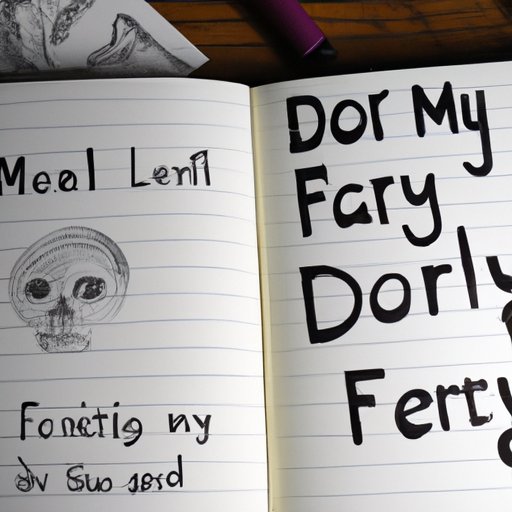 Meal Lenl
Fonetig ny
Suo serd
Dor My
Fary
Dorly
Ferty